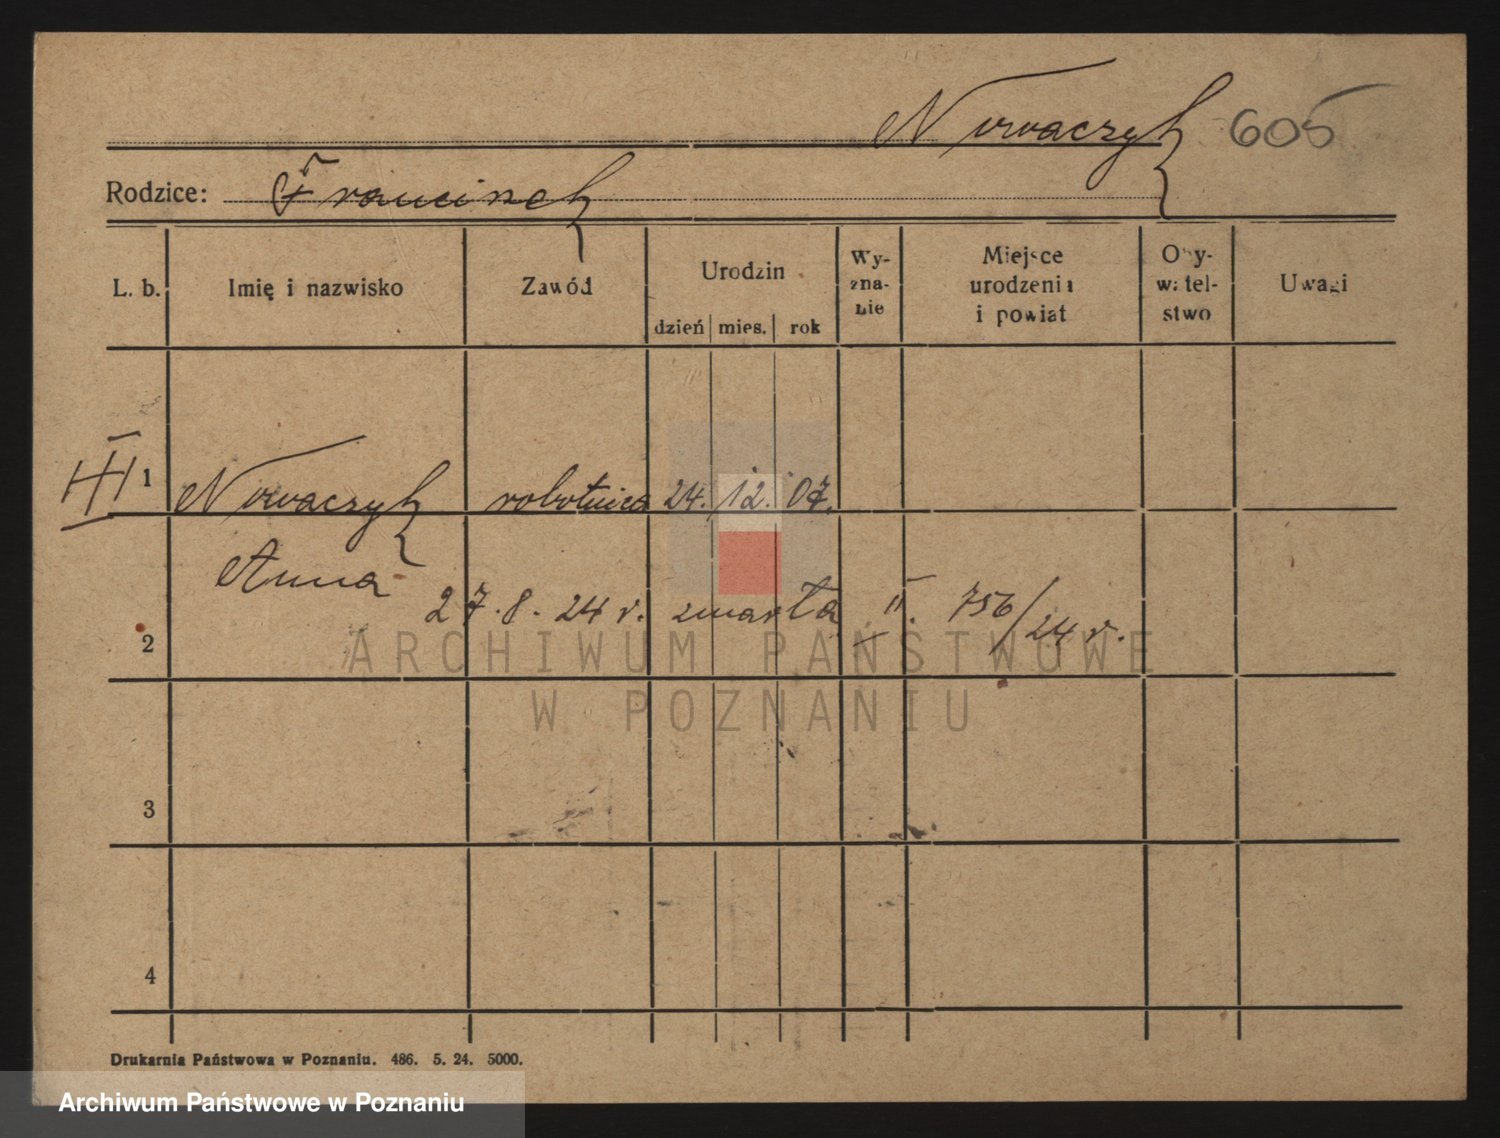 Nowaczyk 605
Rodzice: Franciszek
L. b. Imię i nazwisko Zawód Urodzin dzień mies. rok Wy-zna-nie Miejsce urodzenia i powiat Oby-watel-stwo Uwagi
III 1 Nowaczyk robotnica 24. 12. 07.
Anna
27.8.24 r. zmarła II. 756/24 r.
2
3
4
Drukarnia Państwowa w Poznaniu. 486. 5. 24. 5000.
ARCHIWUM PAŃSTWOWE
W POZNANIU
Archiwum Państwowe w Poznaniu